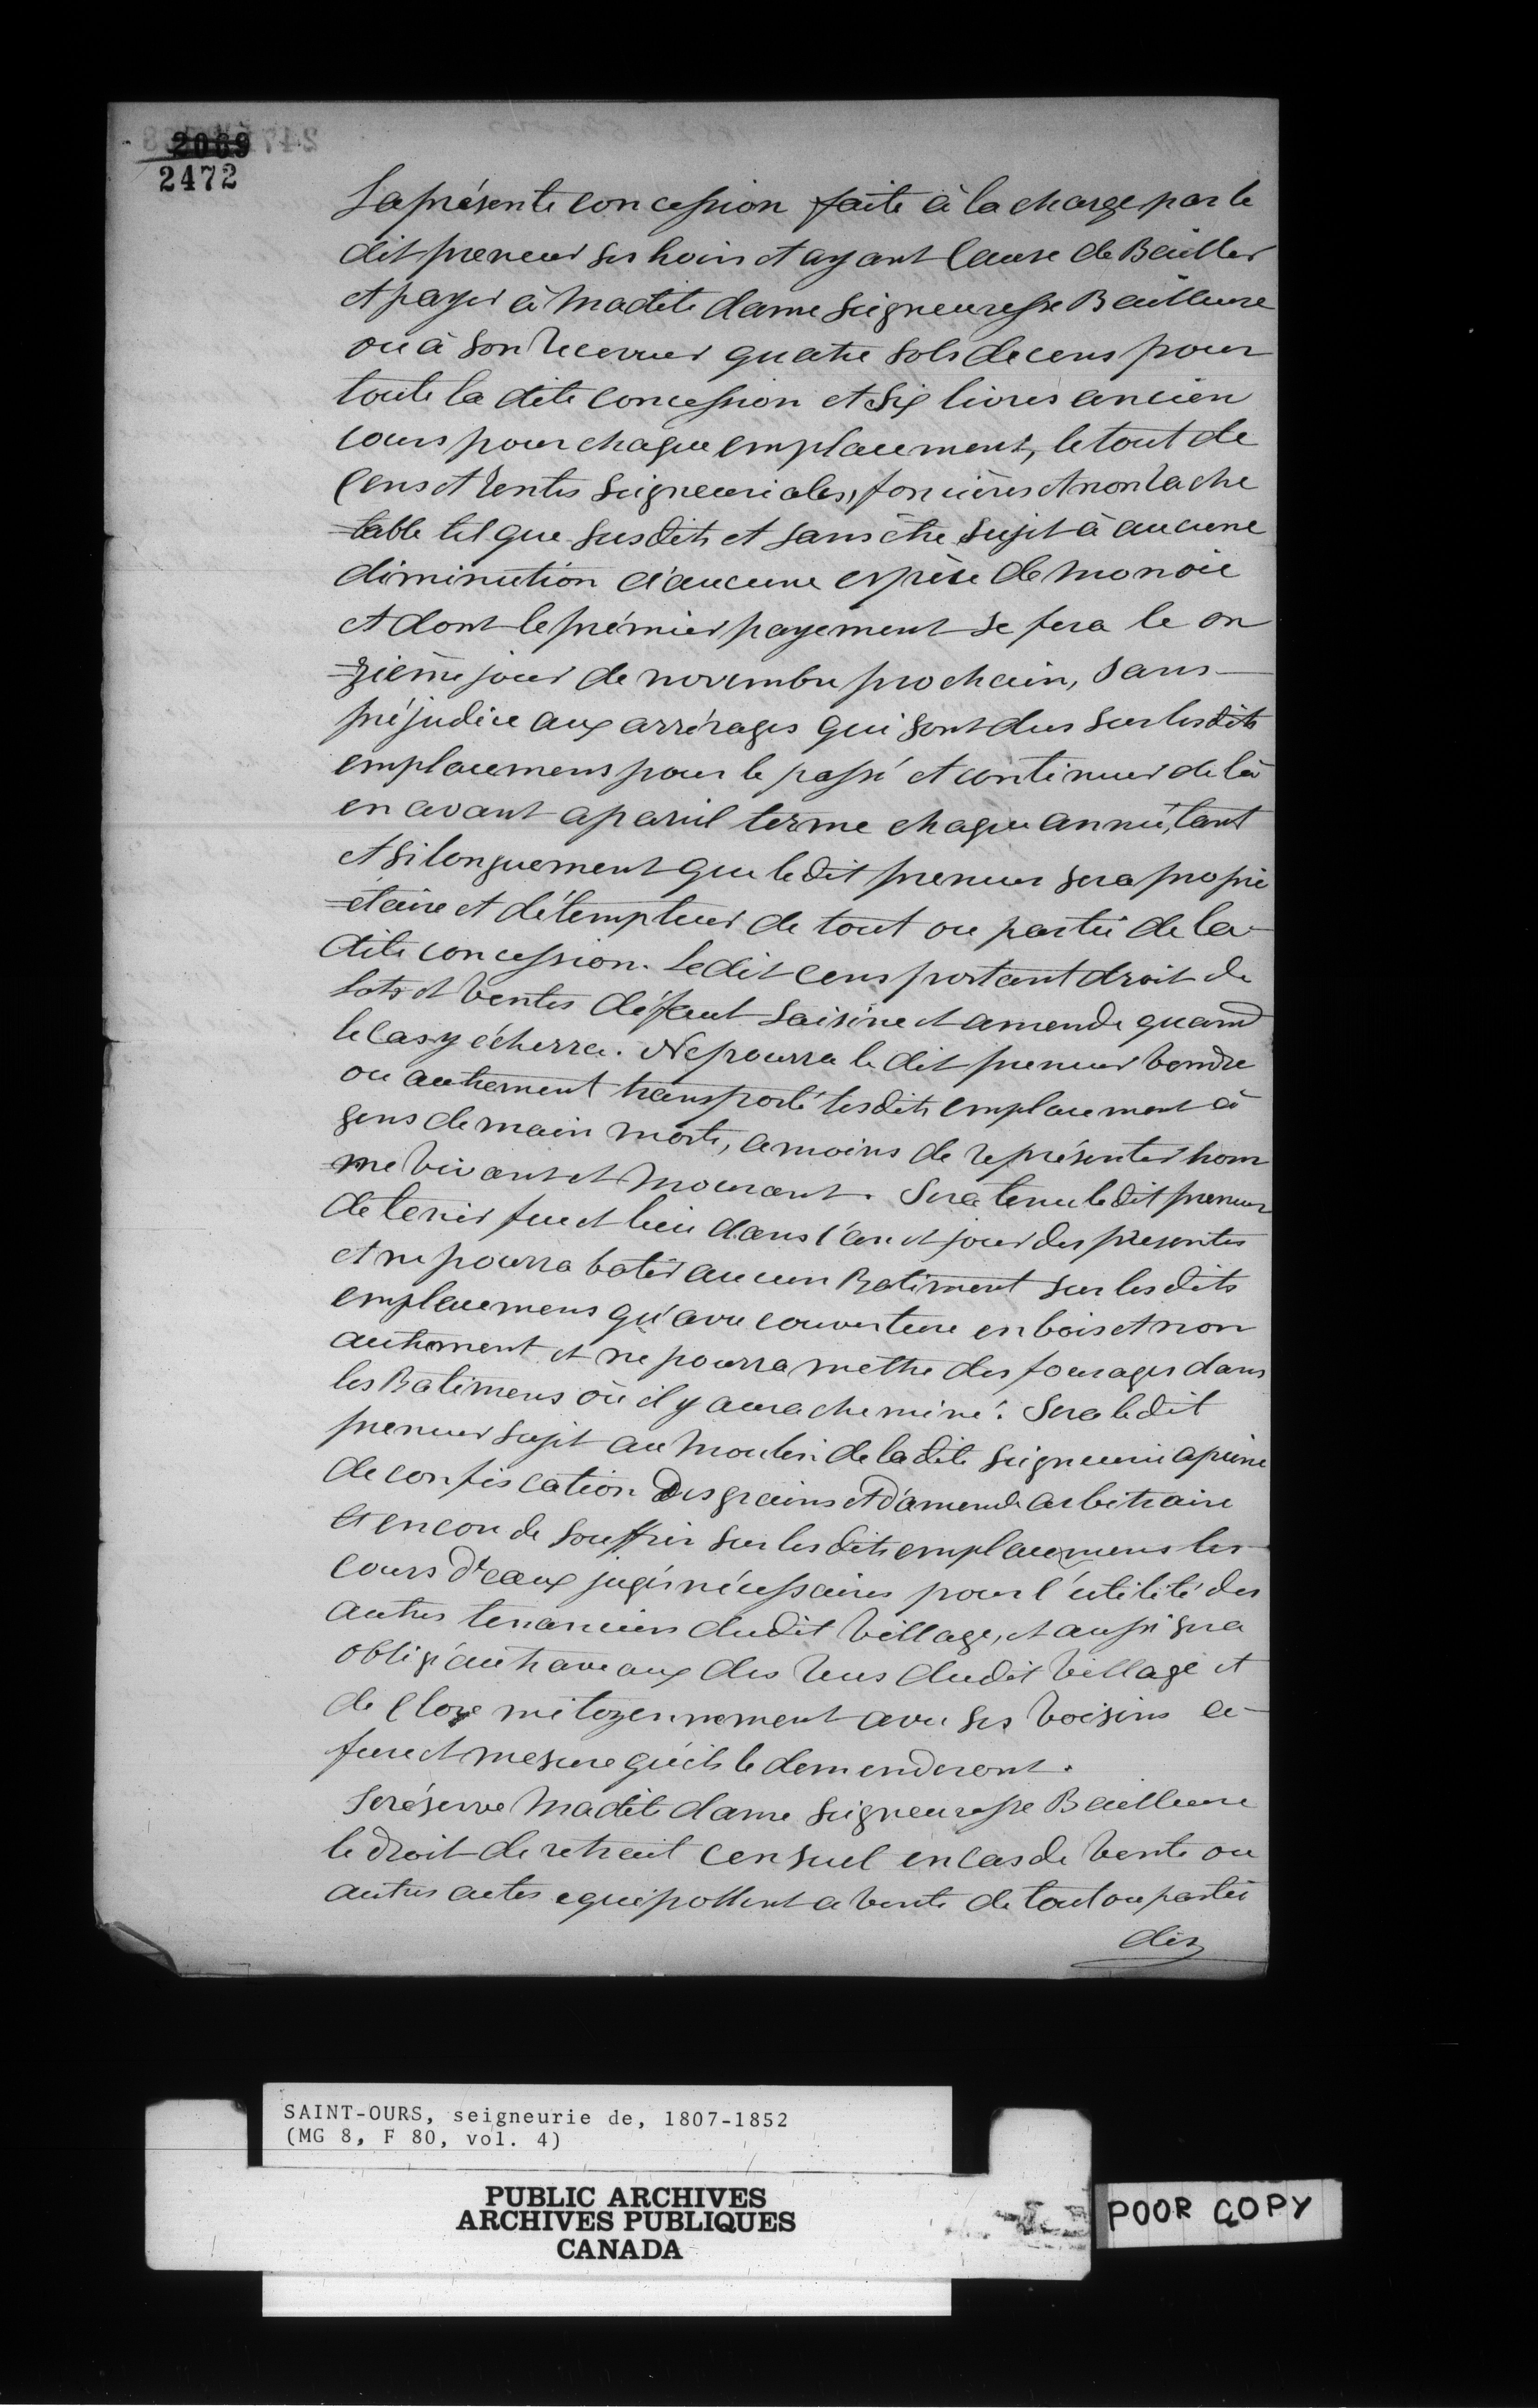 2069
2472
La présente concession faite à la charge par le
dit preneur ses hoirs et ayant cause de Bailler
et payer à Madite dame Seigneuresse Bailleure
ou à son Receveur quatre sols de cens pour
toute la dite concession et six livres ancien
cours pour chaque emplacement, le tout de
Cens et Rentes Seigneuriales, foncières et non rache
=table tel que susdits et sans être sujet à aucune
diminution d'aucune espèce de monoie
et dont le prémier payement se fera le on
=zième jour de novembre prochain, sans
préjudice aux arrérages qui sont dus sur lesdits
emplacemens pour le passé et continuer de là
en avant a pareil terme chaque année, tant
et si longuement que le dit preneur sera proprié
=étaire et détempteur de tout ou partie de la
dite concession. Le dit cens portant droit de
Lots et Ventes défaut Saisine et amende quand
le cas y écherra. Ne pourra le dit preneur vendre
ou autrement transporté lesdits emplacement à
gens de main morte, amoins de représenter hom
=me vivant et mourant. Sera tenu le dit preneur
de tenir feu et lieu dans l'an et jour des présentes
et ne pourra batir aucun Batiment sur les dits
emplacemens qu'avec couverture en bois et non
autrement et ne pourra mettre des fourages dans
les Batimens où il y aura cheminé. Sera le dit
preneur sujet au Moulin de la dite Seigneurie apeine
de confiscation des grains et d'amende arbitraire
et encore de souffrir sur lesdits emplacemens les
cours d'eaux jugés nécessaires pour l'utilité des
autres tenanciers dudit Village, et aussi sera
obligé au travaux des rues dudit Village et
de clore mitoyennement avec ses voisins a
fure et mesure qu'ils le demenderont.
Se réserve Madite dame Seigneuresse Bailleure
le droit de retrait censuel en cas de Vente ou
autres actes equipollent a vente de tout ou partie
des
SAINT-OURS, seigneurie de, 1807-1852
(MG 8, F 80, vol. 4)
PUBLIC ARCHIVES
ARCHIVES PUBLIQUES
CANADA
POOR COPY